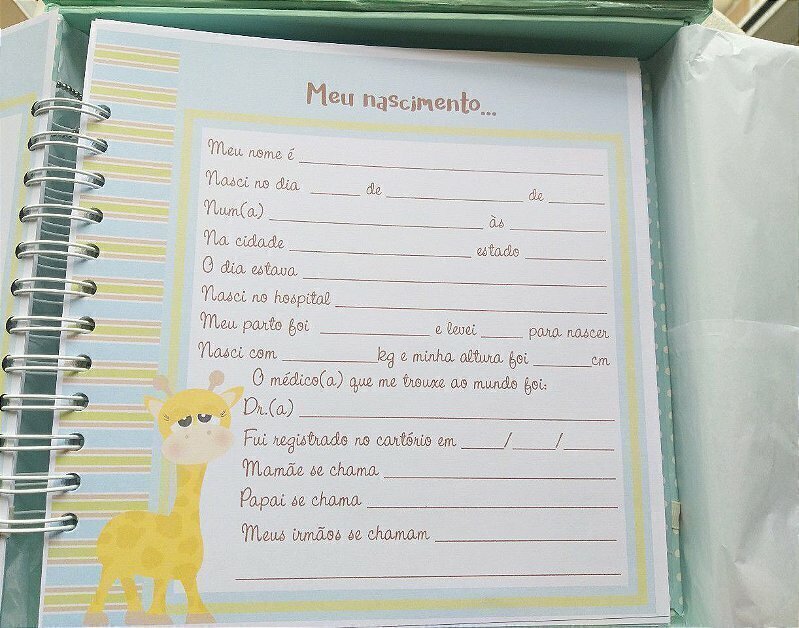 Meu nascimento...
Meu nome é ____________________
Nasci no dia _____ de ______________ de ______
Num(a) ____________________ às __________
Na cidade __________________ estado ________
O dia estava ____________________
Nasci no hospital ____________________
Meu parto foi ___________ e levei ____ para nascer
Nasci com _________kg e minha altura foi ______cm
O médico(a) que me trouxe ao mundo foi:
Dr.(a) ____________________
Fui registrado no cartório em ____/____/____
Mamãe se chama ____________________
Papai se chama ____________________
Meus irmãos se chamam __________________